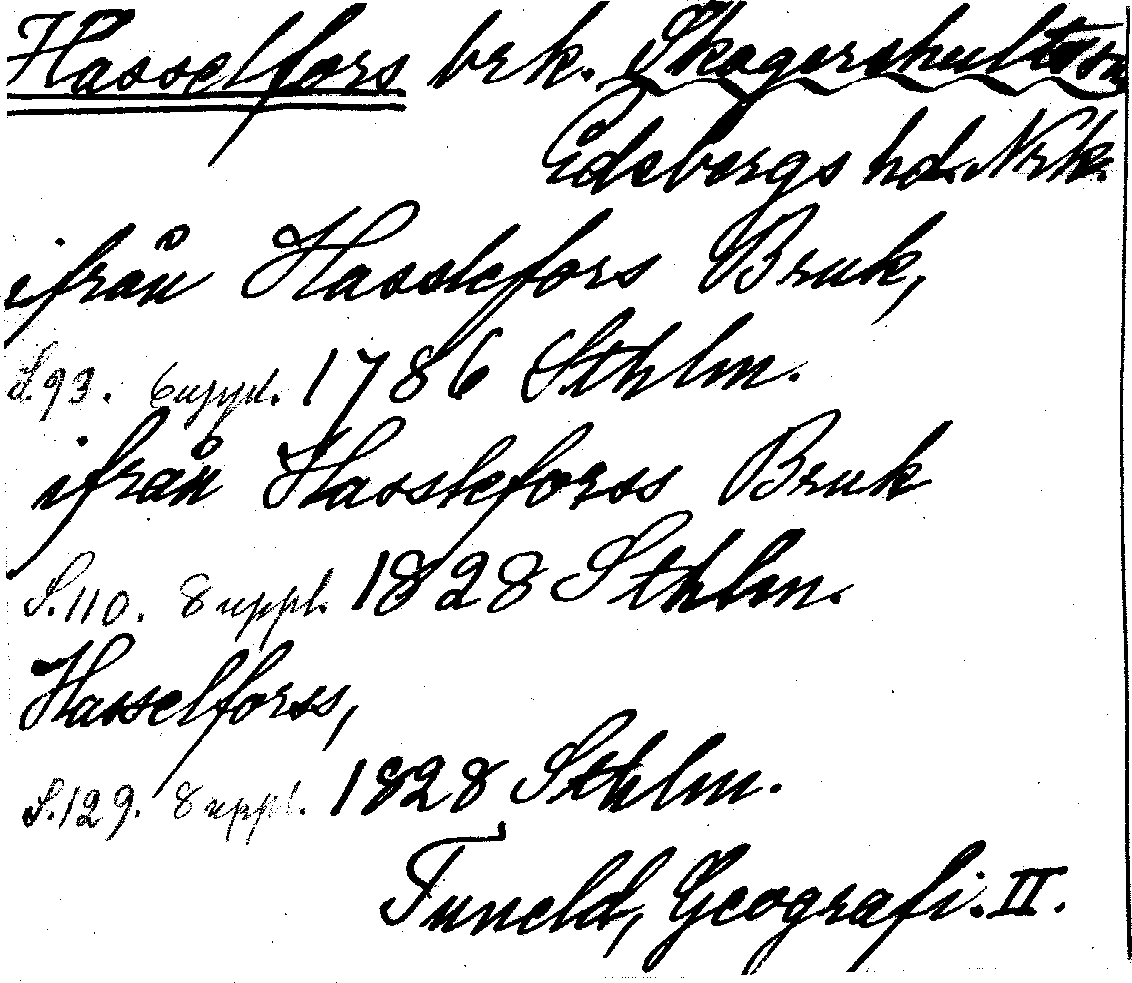 Hasselfors brk. Skagershults sn
Edsbergs hd. Nrk.
ifrån Hasslefors Bruk,
S.93. 6 uppl. 1786 Sthlm.
ifrån Hassleforss Bruk
S.110. 8 uppl. 1828 Sthlm.
Hasselforss,
S.129. 8 uppl. 1828 Sthlm.
Tuneld, Geografi. II.